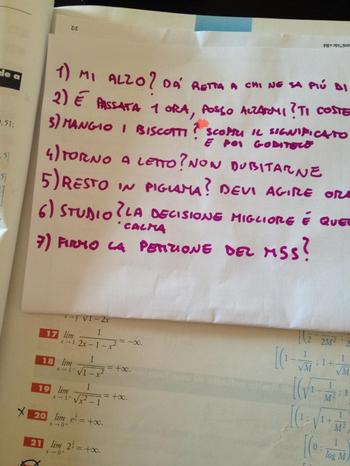 22
de a
51;
1) MI ALZO? DA' RETTA A CHI NE SA PIÙ DI
2) È PASSATA 1 ORA, POSSO ALZARMI? TI COSTE
3) MANGIO I BISCOTTI? SCOPRI IL SIGNIFICATO
E POI GODITELO
4) TORNO A LETTO? NON DUBITARNE
5) RESTO IN PIGIAMA? DEVI AGIRE ORA
6) STUDIO? LA DECISIONE MIGLIORE È QUEL
CALMA
7) FIRMO LA PETIZIONE DEL MSS?
√1-2x
17 lim x→1 1/(2x-1-x²) = -∞.
18 lim x→1⁻ 1/√(1-x²) = +∞.
19 lim x→1⁺ 1/√(x²-1) = +∞.
x 20 lim x→0⁺ e^(1/x) = +∞.
21 lim x→0⁺ 2^(1/x) = +∞.